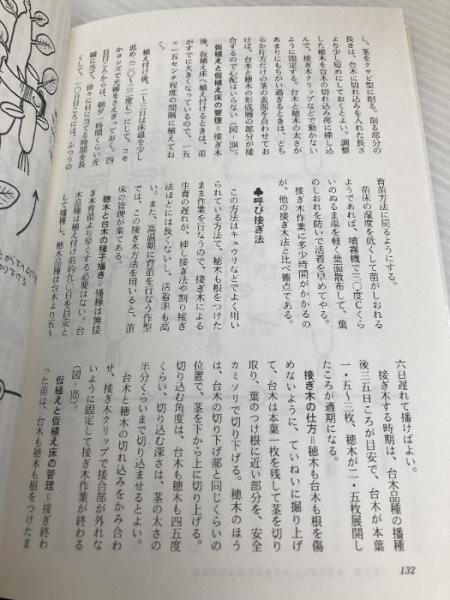 し、茎をクサビ型に削る。削る部分の
長さは、台木に切れ込みを入れた長さ
より少し短めにしておくとよい。調整
した穂木を台木の切れ込み部に挿し込
んで、接ぎ木クリップなどで動かない
ように固定する。台木と穂木の太さが
あまりにもちがい過ぎるときは、どち
らか片方だけの茎の表面を合わせてお
けば、台木と穂木の形成層の部分が接
合するので心配はいらない（図—104）。
仮植えと仮植え床の管理＝接ぎ木
後、仮植え床へ植付けするときは、苗
がすでに大きくなっているので、一五
×一五センチ程度の間隔に植えてお
植え付け後、二〜三日は床温を少し
かヨシズで光線をさえぎっておく。四
日目ころからは、朝夕一時間くらい光
線に当て、徐々に日に当てる時間を長
くして、一〇日目ころには、ふつうの
育苗方法に戻るようにする。
苗床の湿度を低くして苗がしおれる
ようであれば、噴霧機で三〇度Cくら
いのぬるま湯を軽く葉面散布して、葉
のしおれを防いで活着を早めてやる。
接ぎ木作業に多少時間がかかるの
が、他の接ぎ木法と比べ難点である。
♣呼び接ぎ法
この方法はキュウリなどでよく用い
られている方法で、穂木も根をつけた
まま作業を行なうので、接ぎ木による
生育の遅れが、挿し接ぎ法や割り接ぎ
法ほどには長くないし、活着率も高
い。また、高温期に育苗を行なう作型
では、この接ぎ木方法を用いると、苗
床の管理が楽である。
穂木と台木の種子播き＝播種は無接
ぎ木育苗より早くする必要はない。台
木品種は植え付け前約九〇日を目安と
して播種し、穂木品種は台木より五〜
六日遅れて播けばよい。
接ぎ木する時期は、台木品種の播種
後三五日ころが目安で、台木が本葉
二・五〜三枚、穂木が二・五枚展開し
たころが適期になる。
接ぎ木の仕方＝穂木も台木も根を傷
めないように、ていねいに掘り上げ
て、台木は本葉一枚を残して茎を切り
取り、葉のつけ根に近い部分を、安全
カミソリで切り下げる。穂木のほう
は、台木の切り下げ部と同じくらいの
位置で、茎を下から上に切り上げる。
切り込む角度は、台木も穂木も四五度
くらい、切り込む深さは、茎の太さの
半分くらいまで切り込ませるとよい。
台木と穂木の切れ込みをかみ合わ
せ、接ぎ木クリップで接合部が外れな
いように固定して接ぎ木作業が終わる
（図—105）。
仮植えと仮植え床の管理＝接ぎ終わ
った苗は、台木も穂木も根をつけたま
132